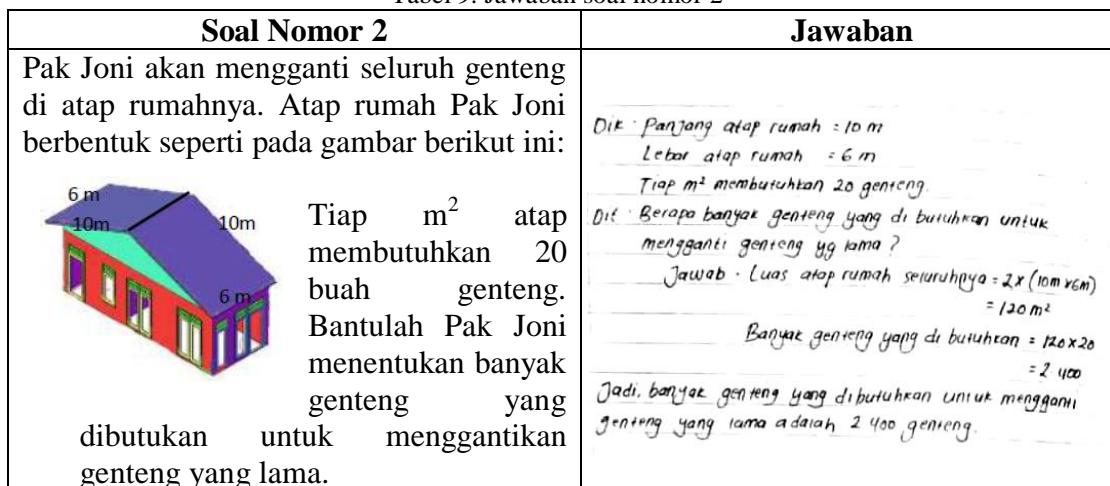 Tabel 9. Jawaban soal nomor 2
Soal Nomor 2
Pak Joni akan mengganti seluruh genteng
di atap rumahnya. Atap rumah Pak Joni
berbentuk seperti pada gambar berikut ini:
6 m
10m
10m
6 m
Tiap m² atap
membutuhkan 20
buah genteng.
Bantulah Pak Joni
menentukan banyak
genteng yang
dibutukan untuk menggantikan
genteng yang lama.
Jawaban
Dik : Panjang atap rumah = 10 m
Lebar atap rumah = 6 m
Tiap m² membutuhkan 20 genteng.
Dit : Berapa banyak genteng yang di butuhkan untuk
mengganti genteng yg lama ?
Jawab : Luas atap rumah seluruhnya = 2 x (10m x 6m)
= 120 m²
Banyak genteng yang di butuhkan = 120 x 20
= 2.400
Jadi, banyak genteng yang dibutuhkan untuk mengganti
genteng yang lama adalah 2 400 genteng.